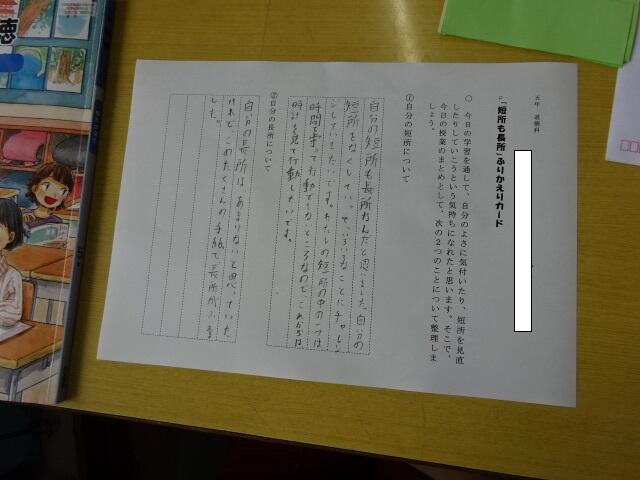 五年 道徳科
○「短所も長所」ふりかえりカード
○ 今日の学習を通して、自分のよさに気付いたり、短所を見直
したりしていこうという気持ちになれたと思います。そこで、
今日の授業のまとめとして、次の2つのことについて整理しま
しょう。
①自分の短所について
自分の短所も長所なんだと思いました。自分の
短所をなくしていって、いろいろなことにチャレン
ジしていきたいです。わたしの短所の中の一つは
時間を守って行動できないところなので、これからは
時計を見て行動したいです。
②自分の長所について
自分の長所は、あまりないと思っていた
けれどこのたくさんの手紙で長所が
した。
徳